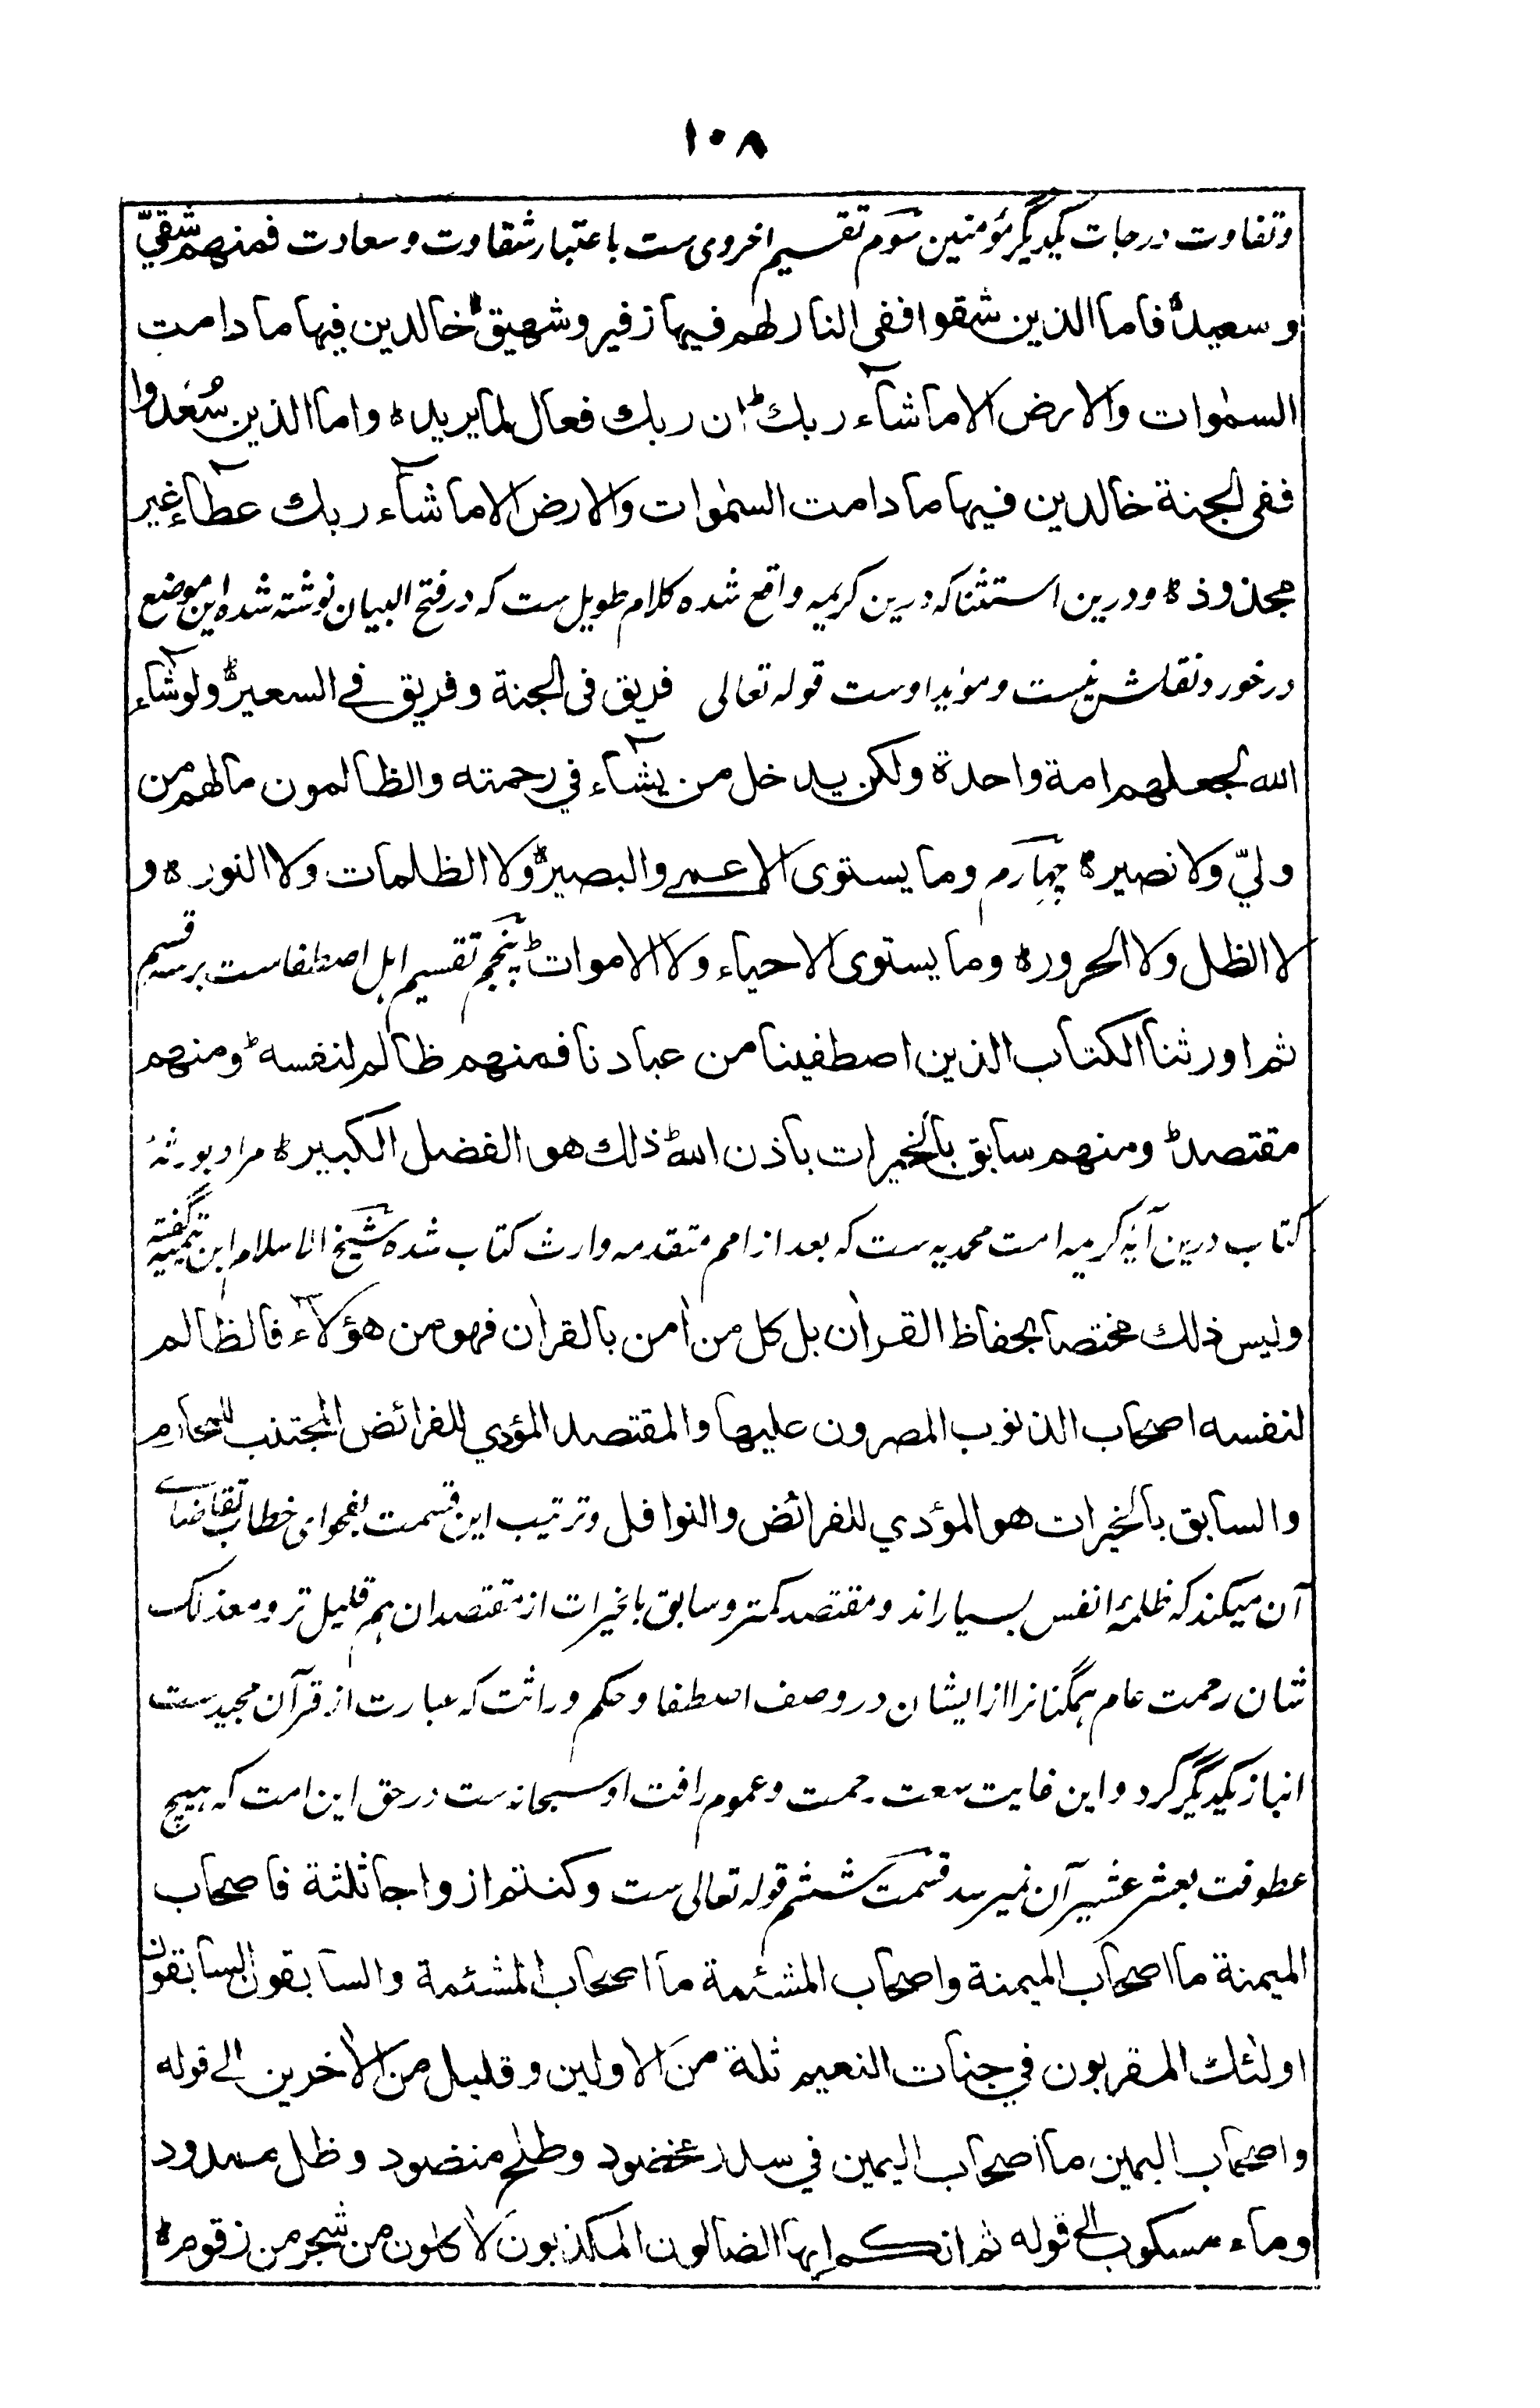 ۱۰۸
وتفاوت درجات یکدیگر مؤمنین سوم تقسیم اخروی ست باعتبار شقاوت وسعادت فمنهم شقيّ
وسعيد ط فاما الذين شقوا ففى النار لهم فيها زفير وشهيق ہ خالدين فيها ما دامت
السمٰوات والارض الا ما شآء ربك ط ان ربك فعال لما يريد ہ واما الذين سُعدوا
ففى الجنة خالدين فيها ما دامت السمٰوات والارض الا ما شآء ربك عطآء غير
مجذوذ ہ ودرین استثنا که درین کریمه واقع شده کلام طویل ست که در فتح البیان نوشته شده این موضع
درخورد نقلش نیست ومؤید اوست قوله تعالی فريق فى الجنة وفريق فے السعير ط ولو شآء
الله لجعلهم امة واحدة ولكن يدخل من يشآء في رحمته والظالمون ما لهم من
وليّ ولا نصير ہ چهارم وما يستوى الاعمے والبصير ہ ولا الظلمات ولا النور ہ و
لا الظل ولا الحرور ہ وما يستوى الاحياء ولا الاموات ط پنجم تقسیم اہل اصطفاست بر سه قسم
ثم اورثنا الكتاب الذين اصطفينا من عبادنا فمنهم ظالم لنفسه ط ومنهم
مقتصد ط ومنهم سابق بالخيرات باذن الله ط ذلك هو الفضل الكبير ہ مراد بورثهٔ
کتاب درین آیهٔ کریمه امت محمدیه ست که بعد از امم متقدمه وارث کتاب شده شیخ الاسلام ابن تیمیه گفته
وليس ذلك مختصا بحفاظ القرآن بل كل من اٰمن بالقراٰن فهو من هؤلآء فالظالم
لنفسه اصحاب الذنوب المصرون عليها والمقتصد المؤدي للفرائض المجتنب للمحارم
والسابق بالخيرات هو المؤدي للفرائض والنوافل وترتیب این قسمت بفحوای خطاب تقاضاے
آن میکند که ظلمهٔ انفس بسیار اند ومقتصد کمتر وسابق بالخیرات از مقتصدان ہم قلیل تر ومعذلک
شان رحمت عام ہمگنانرا از ایشان در وصف اصطفا وحکم وراثت که عبارت از قرآن مجیدست
انباز یکدیگر کرد واین غایت سعت رحمت وعموم رافت او سبحانه ست در حق این امت که ہیچ
عطوفت بعشر عشیر آن نمیرسد قسمت ششم قوله تعالی ست وكنتم ازواجا ثلثة فاصحاب
الميمنة ما اصحاب الميمنة واصحاب المشئمة ما اصحاب المشئمة والسابقون السابقون
اولٰئك المقربون في جنات النعيم ثلة من الاولين وقليل من الاٰخرين الے قوله
واصحاب اليمين ما اصحاب اليمين في سدر مخضود وطلح منضود وظل ممدود
وماء مسكوب الى قوله ثم انكم ايها الضالون المكذبون لاٰكلون من شجر من زقوم ہ